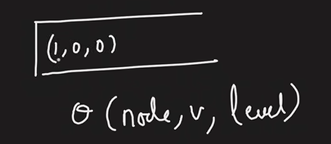 (1,0,0)
θ (node, v, level)